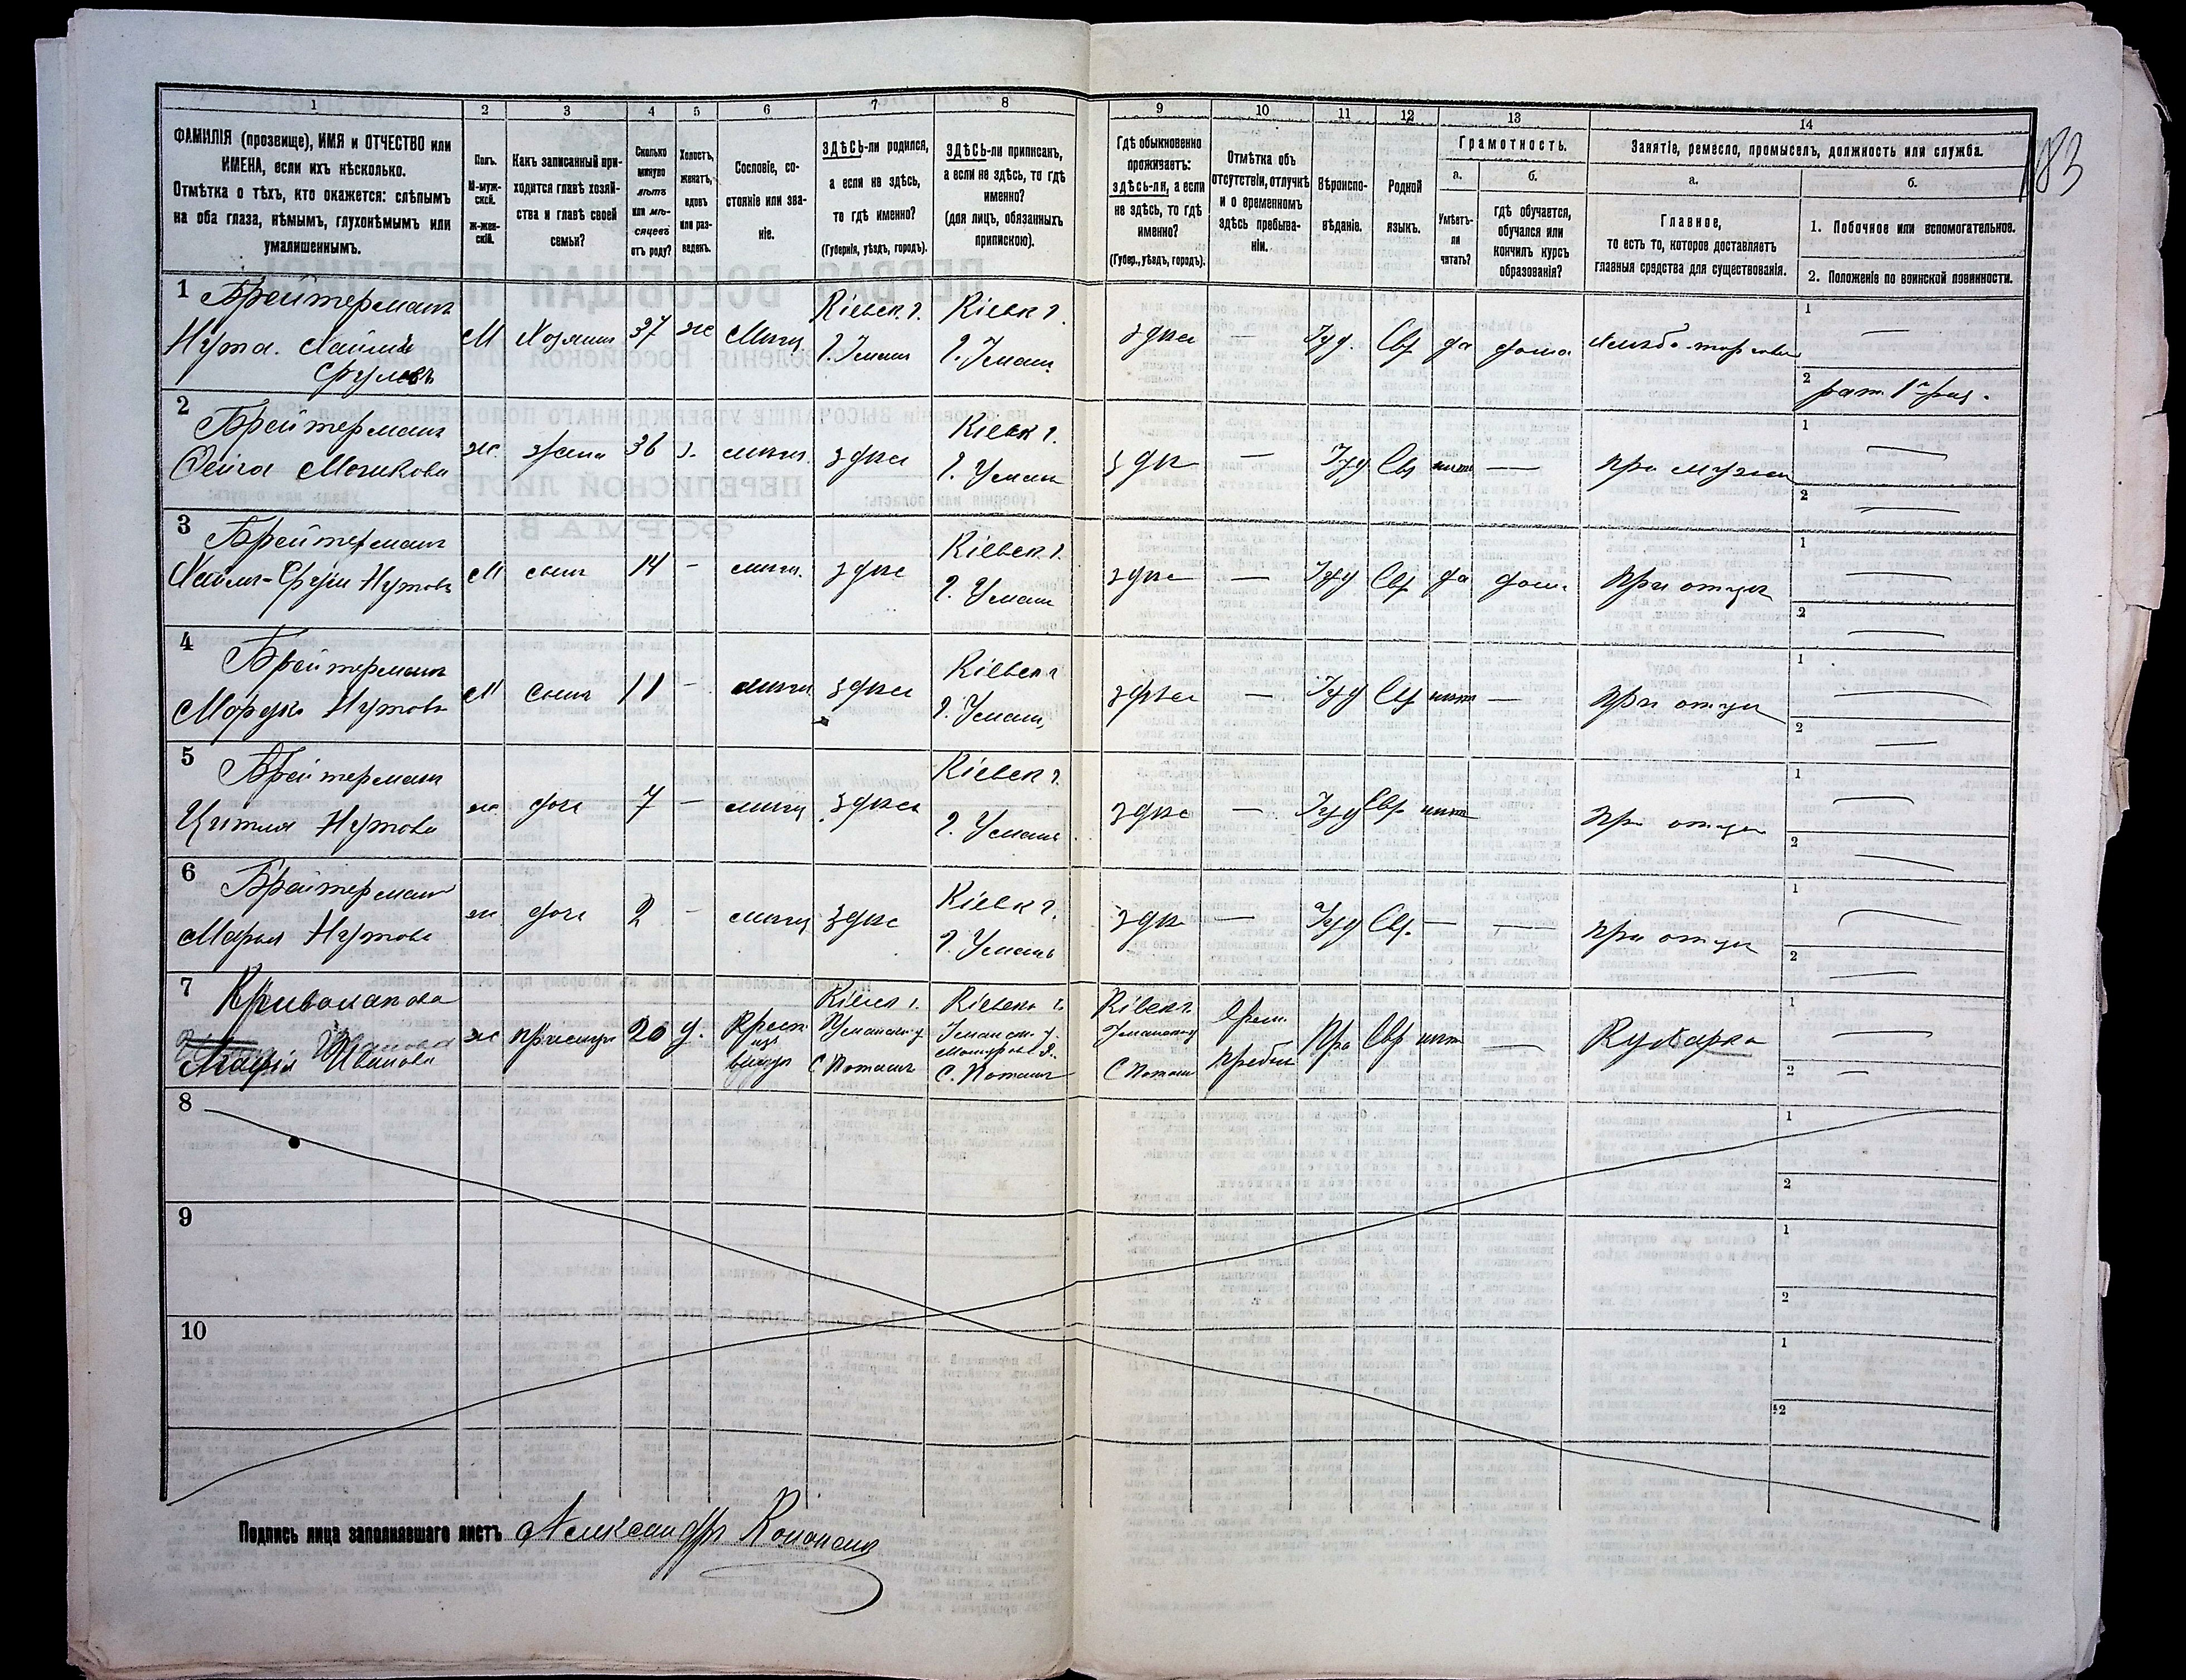 1 2 3 4 5 6 7 8 9 10 11 12 13 14
ФАМИЛІЯ (прозвище), ИМЯ и ОТЧЕСТВО или
ИМЕНА, если ихъ нѣсколько.
Отмѣтка о тѣхъ, кто окажется: слѣпымъ
на оба глаза, нѣмымъ, глухонѣмымъ или
умалишеннымъ.
Полъ.
М-муж-
ской.
Ж-жен-
скій.
Какъ записанный при-
ходится главѣ хозяй-
ства и главѣ своей
семьи?
Сколько
минуло
лѣтъ
или мѣ-
сяцевъ
отъ роду?
Холостъ,
женатъ,
вдовъ
или раз-
веденъ.
Сословіе, со-
стояніе или зва-
ніе.
ЗДѢСЬ-ли родился,
а если не здѣсь,
то гдѣ именно?
(Губернія, уѣздъ, городъ).
ЗДѢСЬ-ли приписанъ,
а если не здѣсь, то гдѣ
именно?
(для лицъ, обязанныхъ
припискою).
Гдѣ обыкновенно
проживаетъ:
здѣсь-ли, а если
не здѣсь, то гдѣ
именно?
(Губер., уѣздъ, городъ).
Отмѣтка объ
отсутствіи, отлучкѣ
и о временномъ
здѣсь пребыва-
ніи.
Вѣроиспо-
вѣданіе.
Родной
языкъ.
Грамотность.
а.
Умѣетъ-
ли
читать?
б.
гдѣ обучается,
обучался или
кончилъ курсъ
образованія?
Занятіе, ремесло, промыселъ, должность или служба.
а.
Главное,
то есть то, которое доставляетъ
главныя средства для существованія.
б.
1. Побочное или вспомогательное.
2. Положеніе по воинской повинности.
183
1 Брейтерманъ
Нута Хаимъ
Фрулевъ
М Хозяинъ 37 ж Мѣщ.
Кіевск. г.
г. Умань
Кіевск г.
г. Умань
здѣсь — Іуд. Евр да дома
1 —
2 рат. 1 раз.
2 Брейтерманъ
Мошкова
ж. жена 36 з. мѣщ. здѣсь
Кіевск г.
г. Умань
здѣс — Іуд Евр нѣт — при мужѣ
1 —
2 —
3 Брейтерманъ
Хаимъ-Фрул Нутовъ
М сынъ 14 - мѣщ. здѣсь
Кіевск. г.
г. Умань
здѣсь — Іуд Евр да дом. При отцѣ
1 —
2 —
4 Брейтерманъ
Мордко Нутовъ
М сынъ 11 - мѣщ здѣсь
Кіевск г
г. Умань
здѣсь — Іуд Евр нѣт — При отцѣ
1 —
2 —
5 Брейтерманъ
Цитля Нутова
ж. доч 7 — мѣщ здѣсь
Кіевск г.
г. Умань
здѣсь — Іуд Евр нѣт При отцѣ
1 —
2 —
6 Брейтерманъ
Марья Нутова
ж доч 2 - мѣщ здѣсь
Кіевск г.
г. Умань
здѣс — Іуд Евр. — — при отцѣ
1 —
2 —
7
Марія Иванова
ж Прислуга 20 д.
Крест
изъ
Кіевск г.
Уманскаго у
С Поташъ
Кіевск г.
Уманск. у
С. Поташъ
Кіевск г.
Уманскаго у
С Поташъ
Врем.
пребыв
Пра нѣт — Кухарка
1 —
2 —
8
1
2
9
1
2
10
1
2
Подпись лица заполнявшаго листъ Александръ